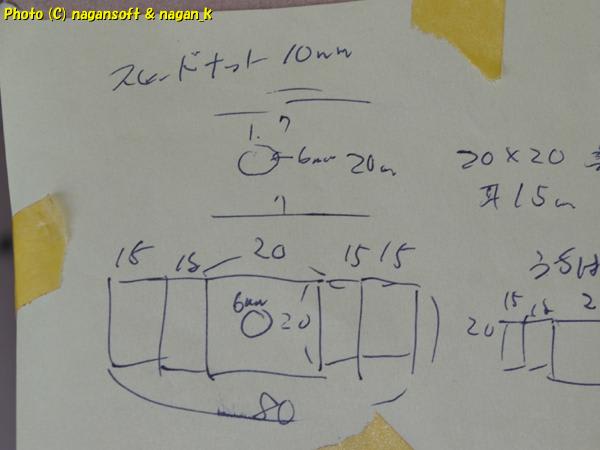 Photo (C) nagansoft & nagan_k
スピードナット 10mm
7
1.
6mm 20m
7
20×20
耳15m
15 15 20 15 15
6mm
20
80
うちは
15 15 2
20